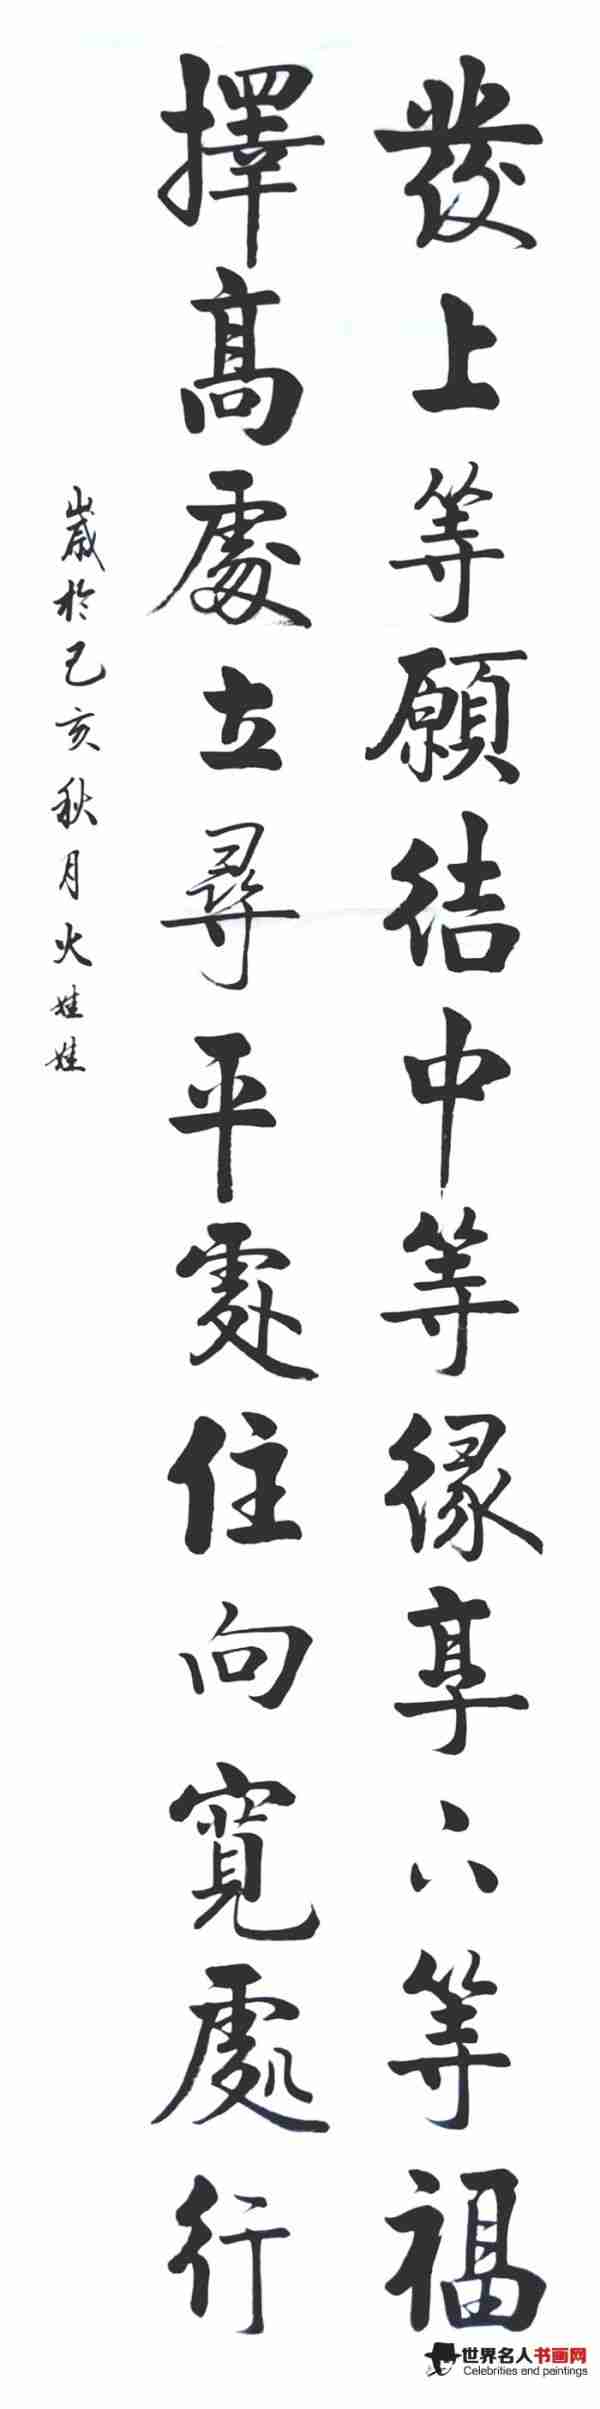 發上等願結中等緣享下等福
擇高處立尋平處住向寬處行
歲於己亥秋月火娃娃
世界名人书画网
Celebrities and paintings